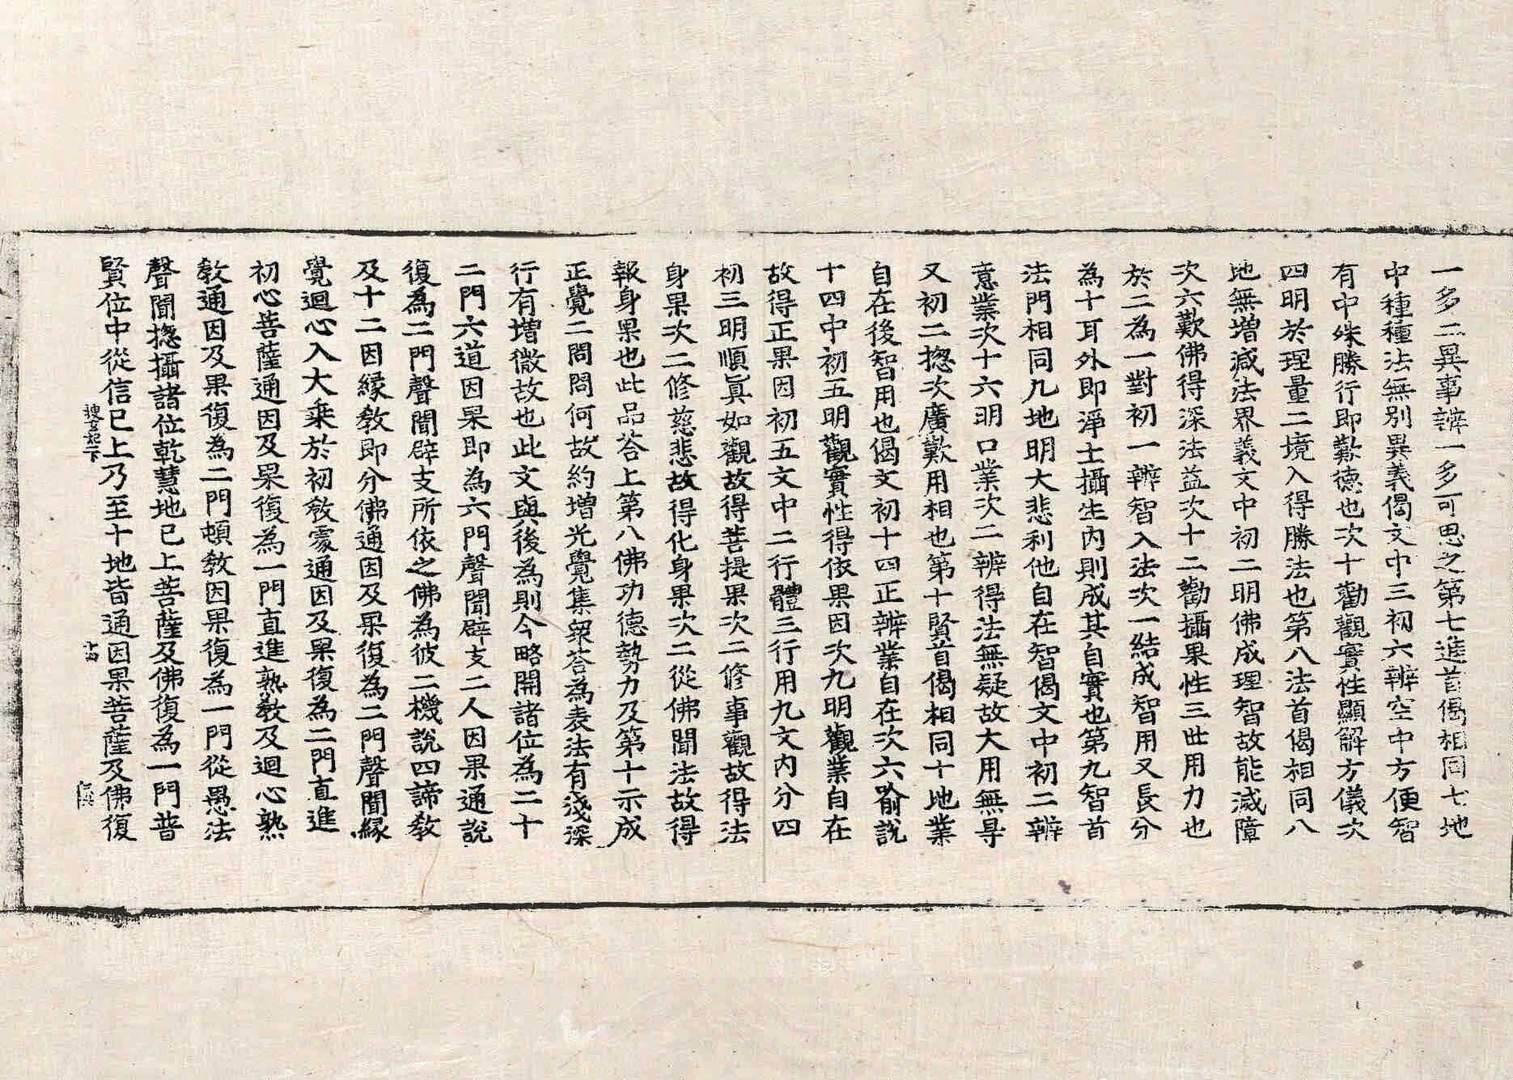 一多二異事辨一多可思之第七進首偈相同七地
中種種法無別異義偈文中三初六辨空中方便智
有中殊勝行即歎德也次十勸觀實性顯解方儀次
四明於理量二境入得勝法也第八法首偈相同八
地無增減法界義文中初二明佛成理智故能滅障
次六歎佛得深法益次十二勸攝果性三世用力也
於二為一對初一辨智入法次一結成智用又長分
為十耳外即淨土攝生內則成其自實也第九智首
法門相同九地明大悲利他自在智偈文中初二辨
意業次十六明口業次二辨得法無疑故大用無㝵
又初二揔次廣歎用相也第十賢首偈相同十地業
自在後智用也偈文初十四正辨業自在次六喻說
十四中初五明觀實性得依果因次九明觀業自在
故得正果因初五文中二行體三行用九文內分四
初三明順真如觀故得菩提果次二修事觀故得法
身果次二修慈悲故得化身果次二從佛聞法故得
報身果也此品荅上第八佛功德勢力及第十示成
正覺二問問何故約增光覺集衆荅為表法有淺深
行有增微故也此文與後為則今略開諸位為二十
二門六道因果即為六門聲聞辟支二人因果通說
復為二門聲聞辟支所依之佛為彼二機說四諦教
及十二因緣教即分佛通因及果復為二門聲聞緣
覺迴心入大乘於初教處通因及果復為二門直進
初心菩薩通因及果復為一門直進熟教及迴心熟
教通因及果復為二門頓教因果復為一門從愚法
聲聞揔攝諸位乾慧地已上菩薩及佛復為一門普
賢位中從信已上乃至十地皆通因果菩薩及佛復
搜玄記一下 十四